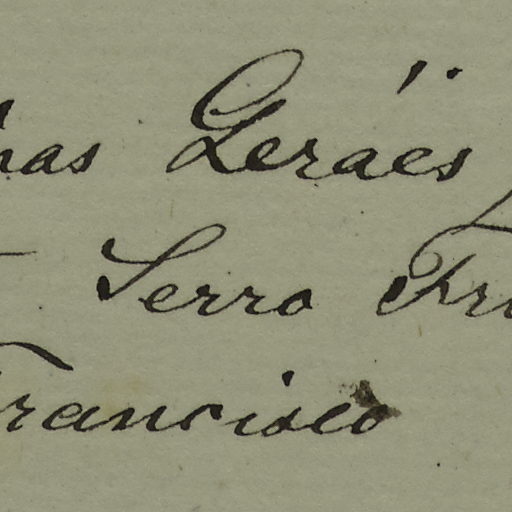 nas Geráes
Serro Fri
Francisco